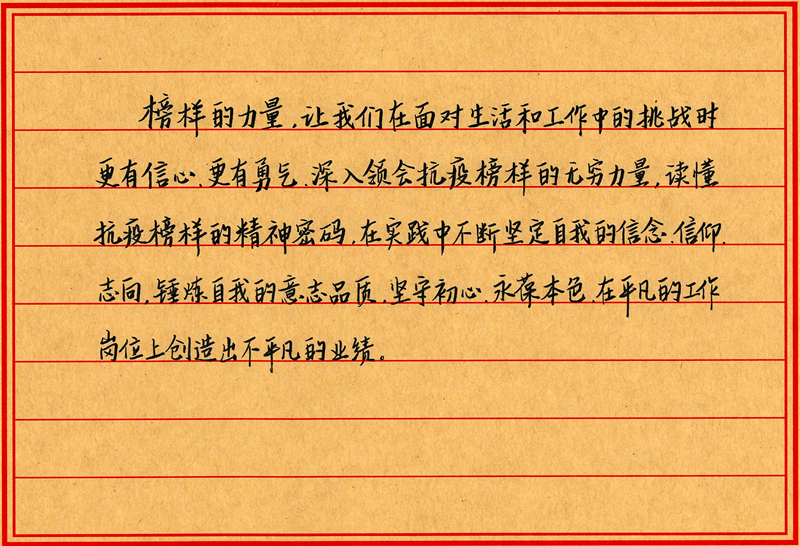 榜样的力量,让我们在面对生活和工作中的挑战时
更有信心、更有勇气。深入领会抗疫榜样的无穷力量,读懂
抗疫榜样的精神密码,在实践中不断坚定自我的信念、信仰、
志向,锤炼自我的意志品质,坚守初心、永葆本色,在平凡的工作
岗位上创造出不平凡的业绩。